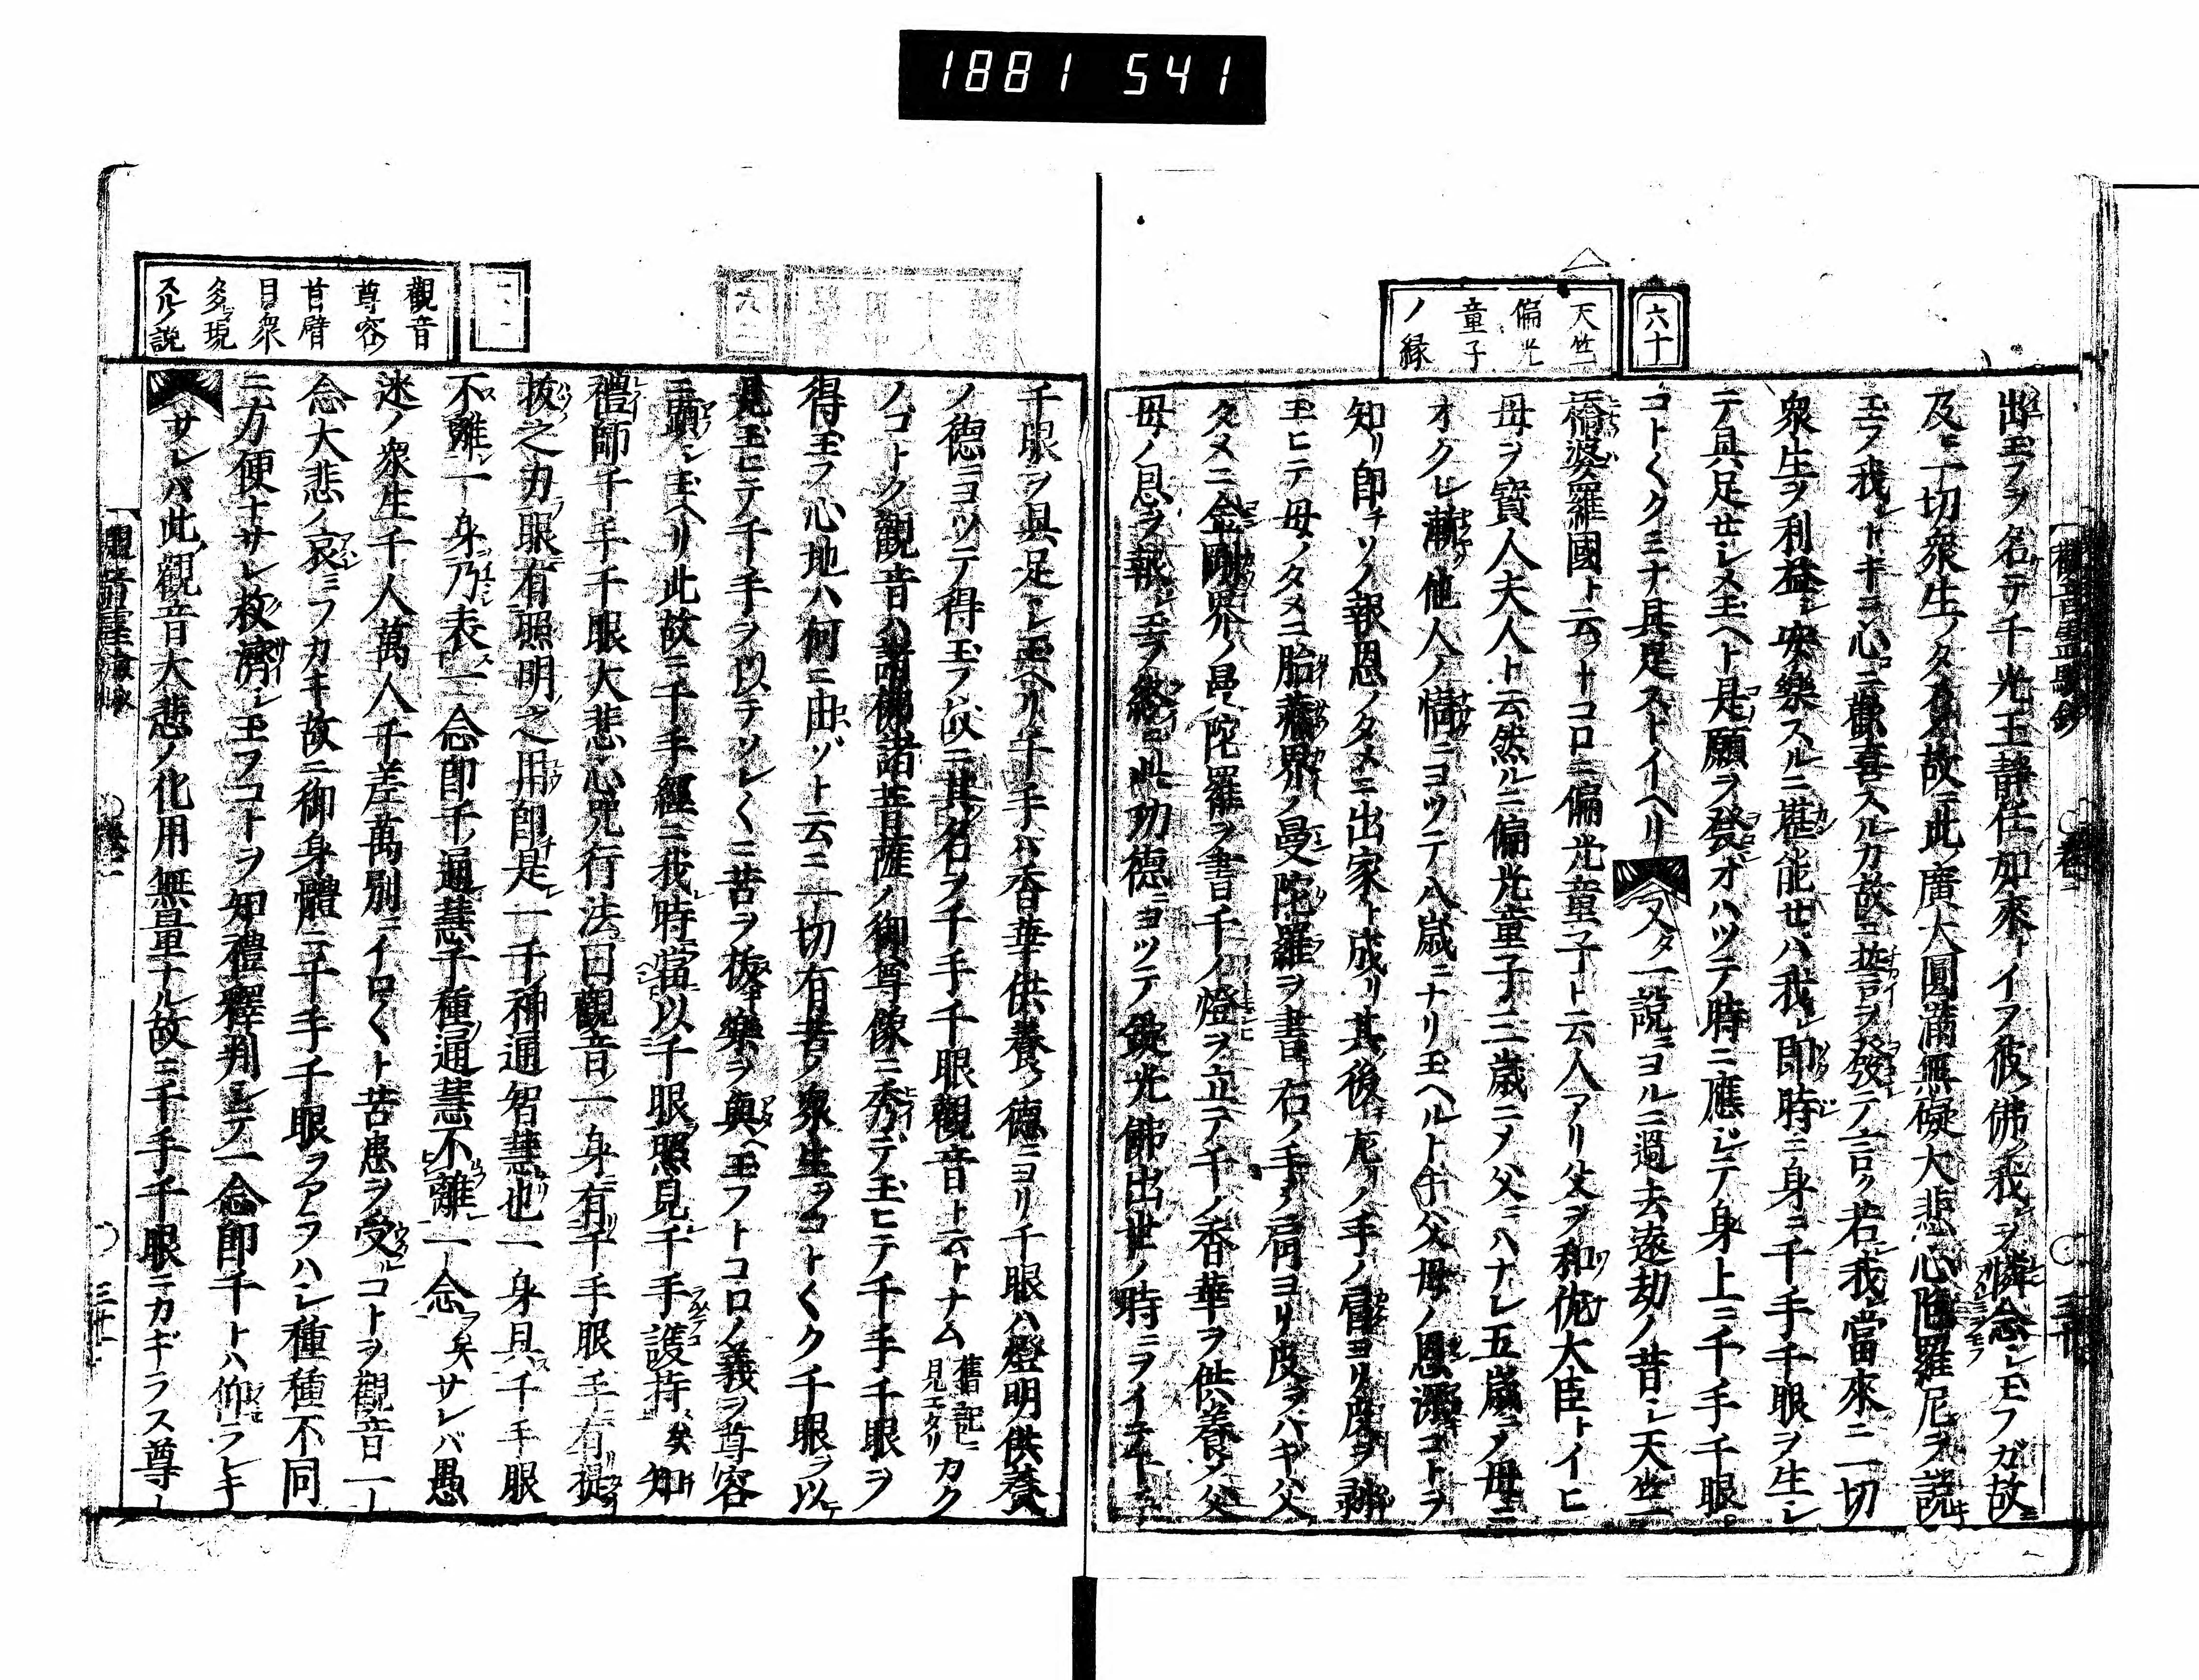 1881 541
六十
天竺
偏光
童子
ノ縁
出玉フヲ名テ千光王靜住如來トイフ彼ノ佛我ヲ憐念シ玉フガ故ニ
及ヒ一切衆生ノタメノ故ニ此廣大圓滿無礙大悲心陀羅尼ヲ説キ
玉フ我レトキニ心ニ歡喜スルカ故ニ誓ヲ發テ言ク若我當來ニ一切
衆生ヲ利益シ安樂スルニ堪能セハ我レ即時ニ身ニ千手千眼ヲ生シ
テ具足セシメ玉ヘト是願ヲ發オハツテ時ニ應シテ身上ニ千手千眼
コト〱クミナ具足ストイヘリ又タ一説ニヨルニ過去遠劫ノ昔シ天竺ニ
橋婆羅國ト云フトコロニ偏光童子ト云人アリ父ヲ和伽大臣トイヒ
母ヲ寳人夫人ト云然ルニ偏光童子三歳ニノ父ニハナレ五歳ニノ母ニ
オクレ漸ク他人ノ情ニヨツテ八歳ニナリ玉ヘルト父母ノ恩深コトヲ
知リ即チソノ報恩ノタメニ出家ト成リ其後左リノ手ノ肩ヨリ皮ヲ
玉ヒテ母ノタメニ胎藏界ノ曼陀羅ヲ書右ノ手ノ肩ヨリ皮ヲハギ父ノ
タメニ金剛界ノ曼陀羅ヲ書千ノ燈ヲ立テ千ノ香華ヲ供養メ父
母ノ恩ヲ報シ玉フ終ニ此功德ニヨツテ錠光佛出世ノ時ニヲイテ千手
千眼ヲ具足シ玉ヘリ千手ハ香華供養ノ德ニヨリ千眼ハ燈明供養
ノ德ニヨツテ得玉フ故ニ其名ヲ千手千眼觀音ト云トナム舊記ニ見エタリカク
ノゴトク觀音ハ諸佛諸菩薩ノ御尊像ニ秀デ玉ヒテ千手千眼ヲ
得玉フ心地ハ何ニ由ヅト云ニ一切有苦ノ衆生ヲコト〱ク千眼ヲ以テ
見玉ヒテ千手ヲ以テソレ〱ニ苦ヲ拔キ樂ヲ與ヘ玉フトコロノ義ヲ尊容
ニ顕シ玉ヘリ此故ニ千手經ニ我時當以千眼照見千手護持矣知
禮師千手千眼大悲心咒行法曰觀音一身有千手眼手有提
拔之力眼有照明之用即是一千神通智慧也一身具千手眼
不離一身乃表一念即千通慧千種通慧不離一念矣サレバ愚
迷ノ衆生千人萬人千差萬別ニイロ〱ト苦患ヲ受ルコトヲ觀音一
念大悲ノ哀ミフカキ故ニ御身體ニ千手千眼ヲアラハシ種種不同
ニ方便ナサレ救濟シ玉フコトヲ知禮釋判シテ一念即千トハ仰ラレキ
サレバ此觀音大悲ノ化用無量ナル故ニ千手千眼ニカギラス尊
觀音
尊容
首臂
目衆
多現
スル説